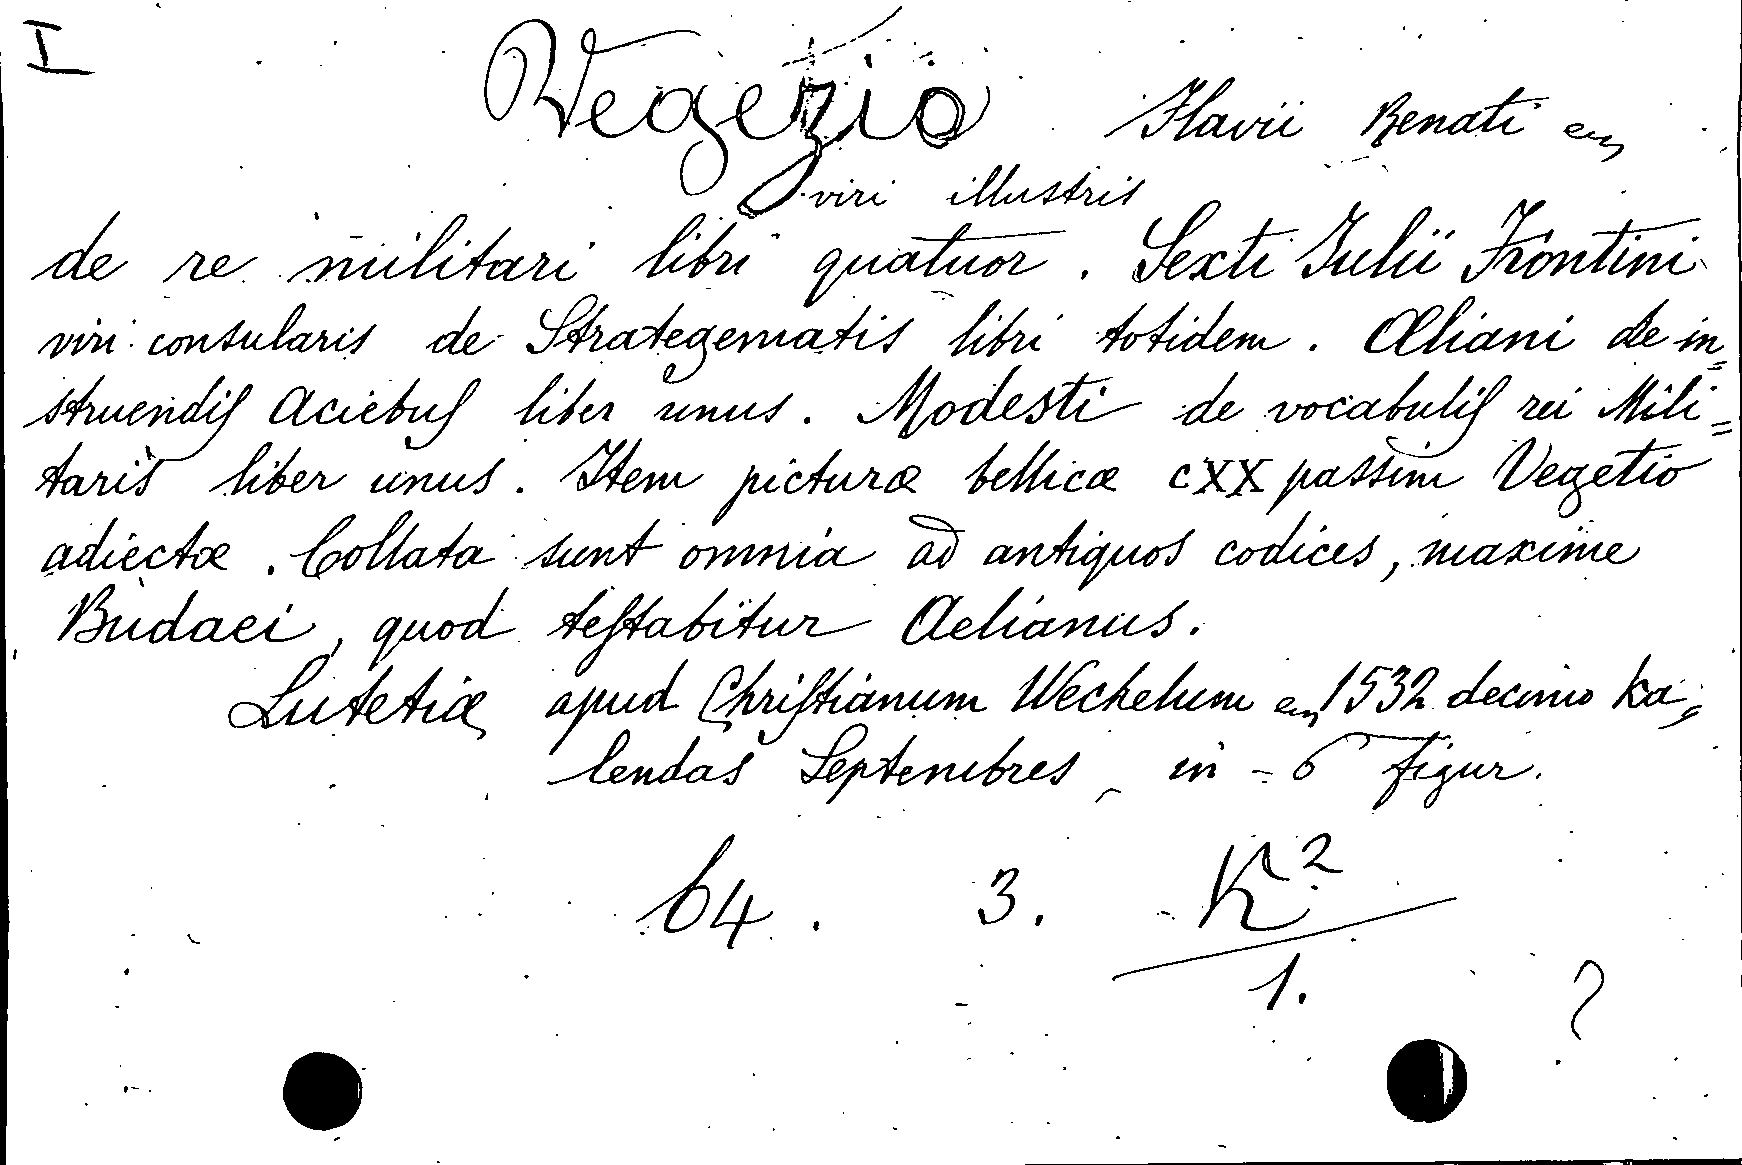 I
Vegezio Flavii Renati
viri illustris
de re militari libri quatuor. Sexti Julii Frontini
viri consularis de Strategematis libri totidem. Æliani de in=
struendis Aciebus liber unus. Modesti de vocabulis rei Mili=
taris liber unus. Item picturæ bellicæ CXX passim Vegetio
adiectæ. Collata sunt omnia ad antiquos codices, maxime
Budaei, quod testabitur Aelianus.
Lutetiæ apud Christianum Wechelum 1532 decimo ka=
lendas Septembres in-6 figur.
64. 3. K²
1.
?